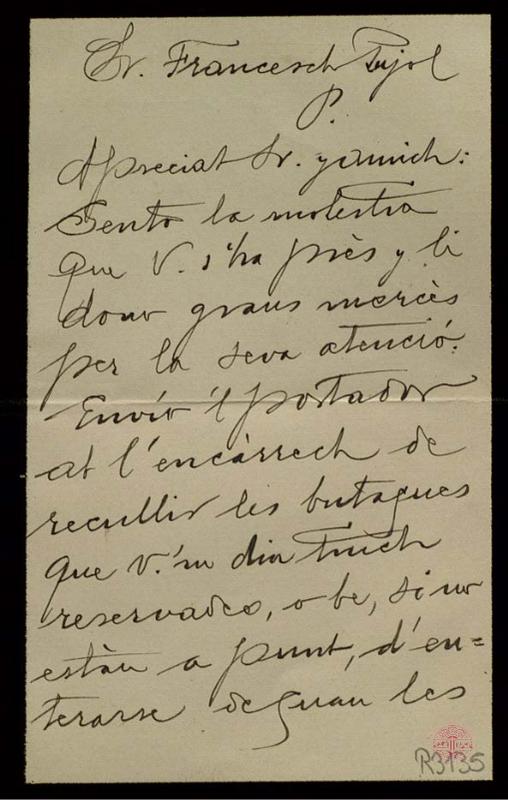 Sr. Francesch Pujol
P.
Apreciat Sr. y amich:
Sento la molestia
que V. s'ha près y li
dono graus mercès
per la seva atenció.
Envío 'l portador
ab l'encàrrech de
recullir les butaques
que V. 'm diu tinch
reservades, o be, si no
estàn a punt, d'en=
terarse de quan les
R3135